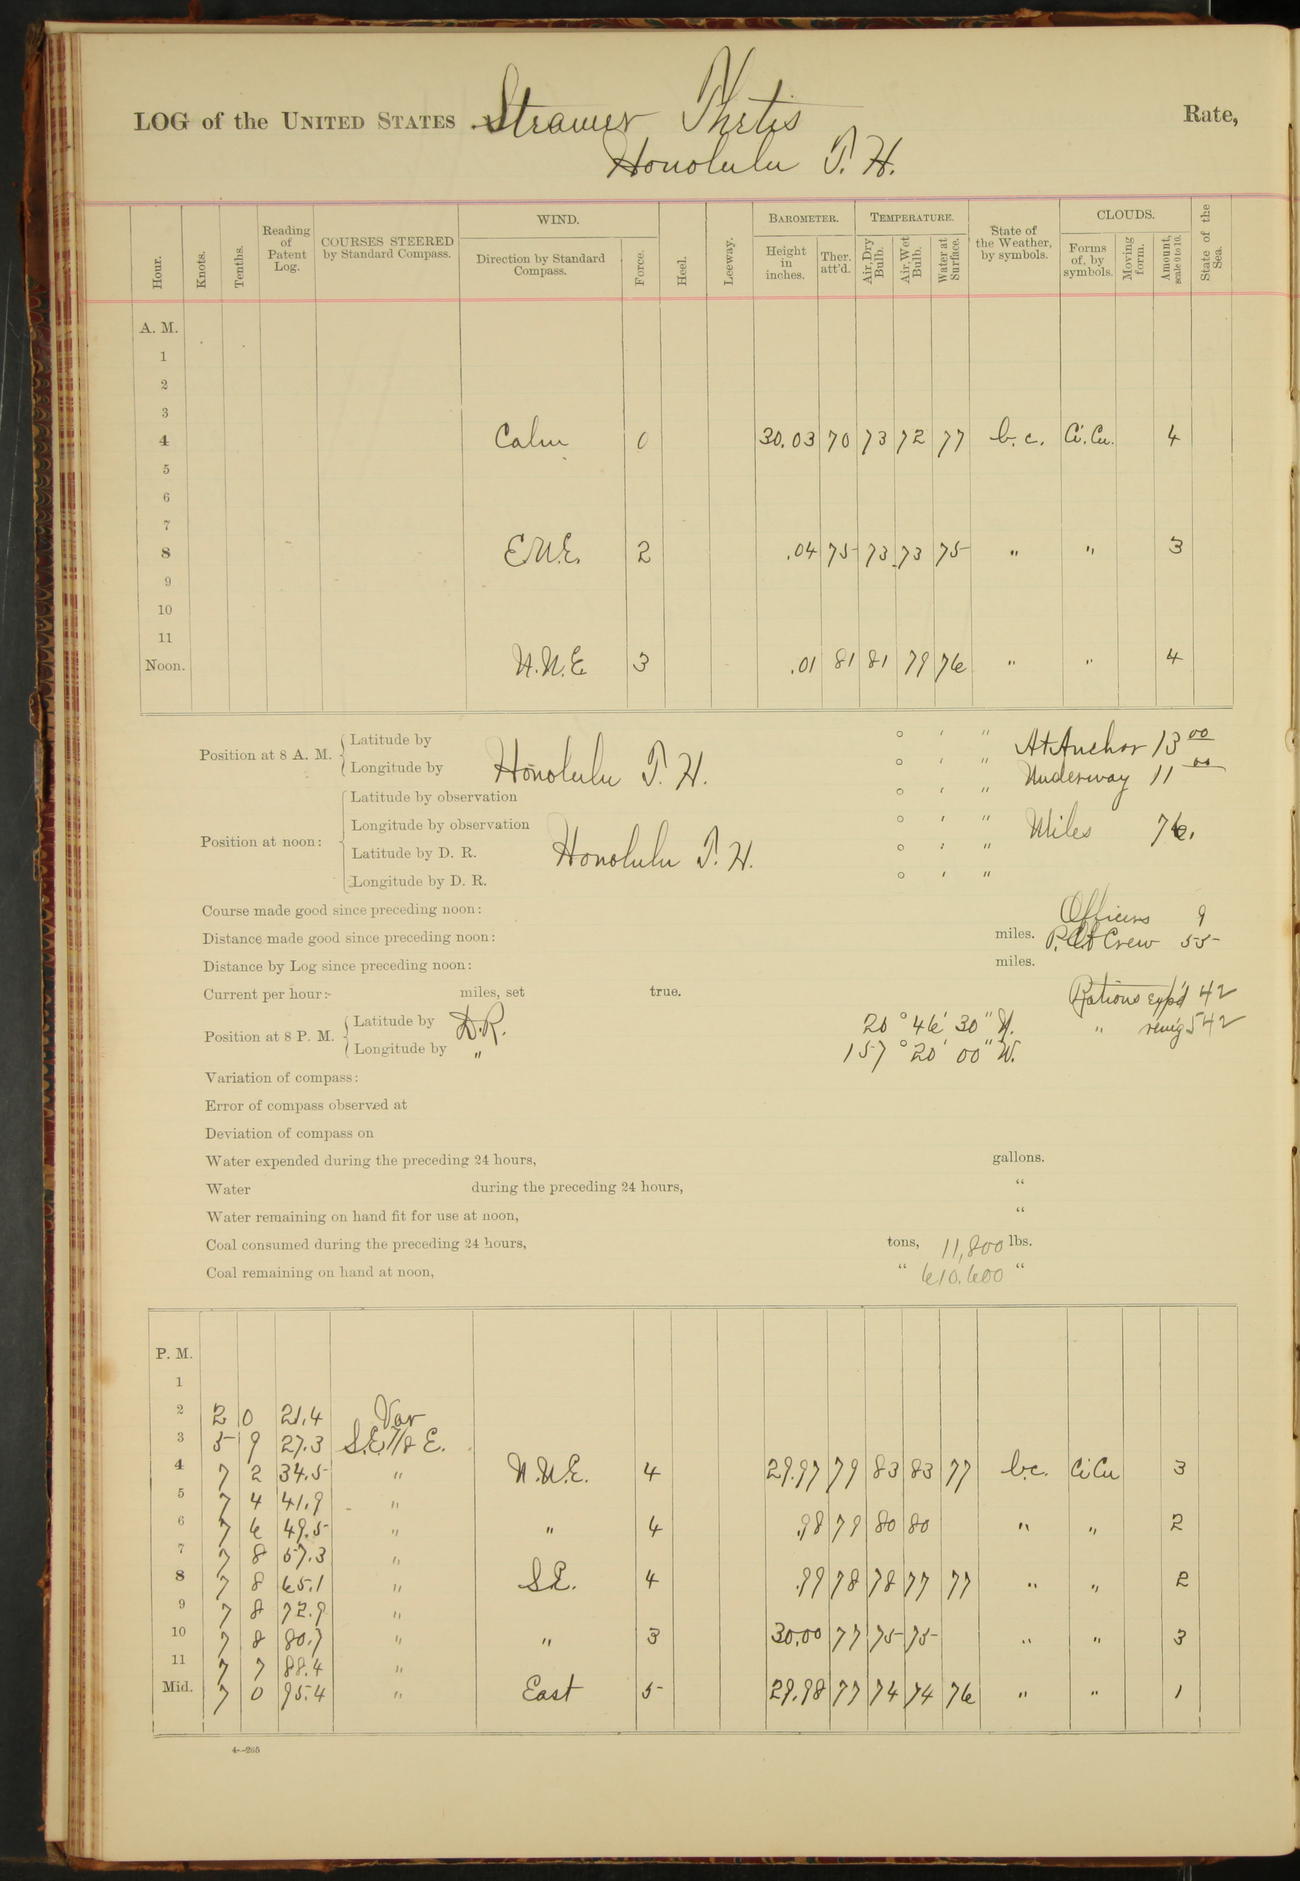 LOG of the UNITED STATES Steamer Thetis Rate,
Honolulu T. H.
Hour. Knots. Tenths. Reading of Patent Log. COURSES STEERED by Standard Compass. WIND. Direction by Standard Compass. Force. Heel. Leeway. BAROMETER. Height in inches. Ther. att'd. TEMPERATURE. Air, Dry Bulb. Air, Wet Bulb. Water at Surface. State of the Weather, by symbols. CLOUDS. Forms of, by symbols. Moving form. Amount, scale 0 to 10. State of the Sea.
A. M.
1
2
3
4 Calm 0 30.03 70 73 72 77 b.c. Ci.Cu. 4
5
6
7
8 E.N.E. 2 .04 75 73 73 75 " " 3
9
10
11
Noon. N.N.E 3 .01 81 81 79 76 " " 4
Position at 8 A. M. Latitude by ° ' " At Anchor 13 00
Longitude by Honolulu T. H. ° ' " Underway 11 00
Position at noon: Latitude by observation ° ' "
Longitude by observation ° ' " Miles 76.
Latitude by D. R. Honolulu T. H. ° ' "
Longitude by D. R. ° ' "
Course made good since preceding noon: Officers 9
Distance made good since preceding noon: miles. Crew 55
Distance by Log since preceding noon: miles.
Current per hour:- miles, set true. Rations exp'd 42
Position at 8 P. M. Latitude by D.R. 20° 46' 30" N. " rem'g 542
Longitude by " 157° 20' 00" W.
Variation of compass:
Error of compass observed at
Deviation of compass on
Water expended during the preceding 24 hours, gallons.
Water during the preceding 24 hours, "
Water remaining on hand fit for use at noon, "
Coal consumed during the preceding 24 hours, tons, 11,800 lbs.
Coal remaining on hand at noon, " 610.600 "
P. M.
1
2 2 0 21.4 Var
3 5 9 27.3 S.E. 7/8 E.
4 7 2 34.5 " N.N.E. 4 29.97 79 83 83 77 b.c. Ci Cu 3
5 7 4 41.9 "
6 7 6 49.5 " " 4 .98 79 80 80 " " 2
7 7 8 57.3 "
8 7 8 65.1 " S.E. 4 .99 78 78 77 77 " " 2
9 7 8 72.9 "
10 7 8 80.7 " " 3 30.00 77 75 75 " " 3
11 7 7 88.4 "
Mid. 7 0 95.4 " East 5 29.98 77 74 74 76 " " 1
4--265